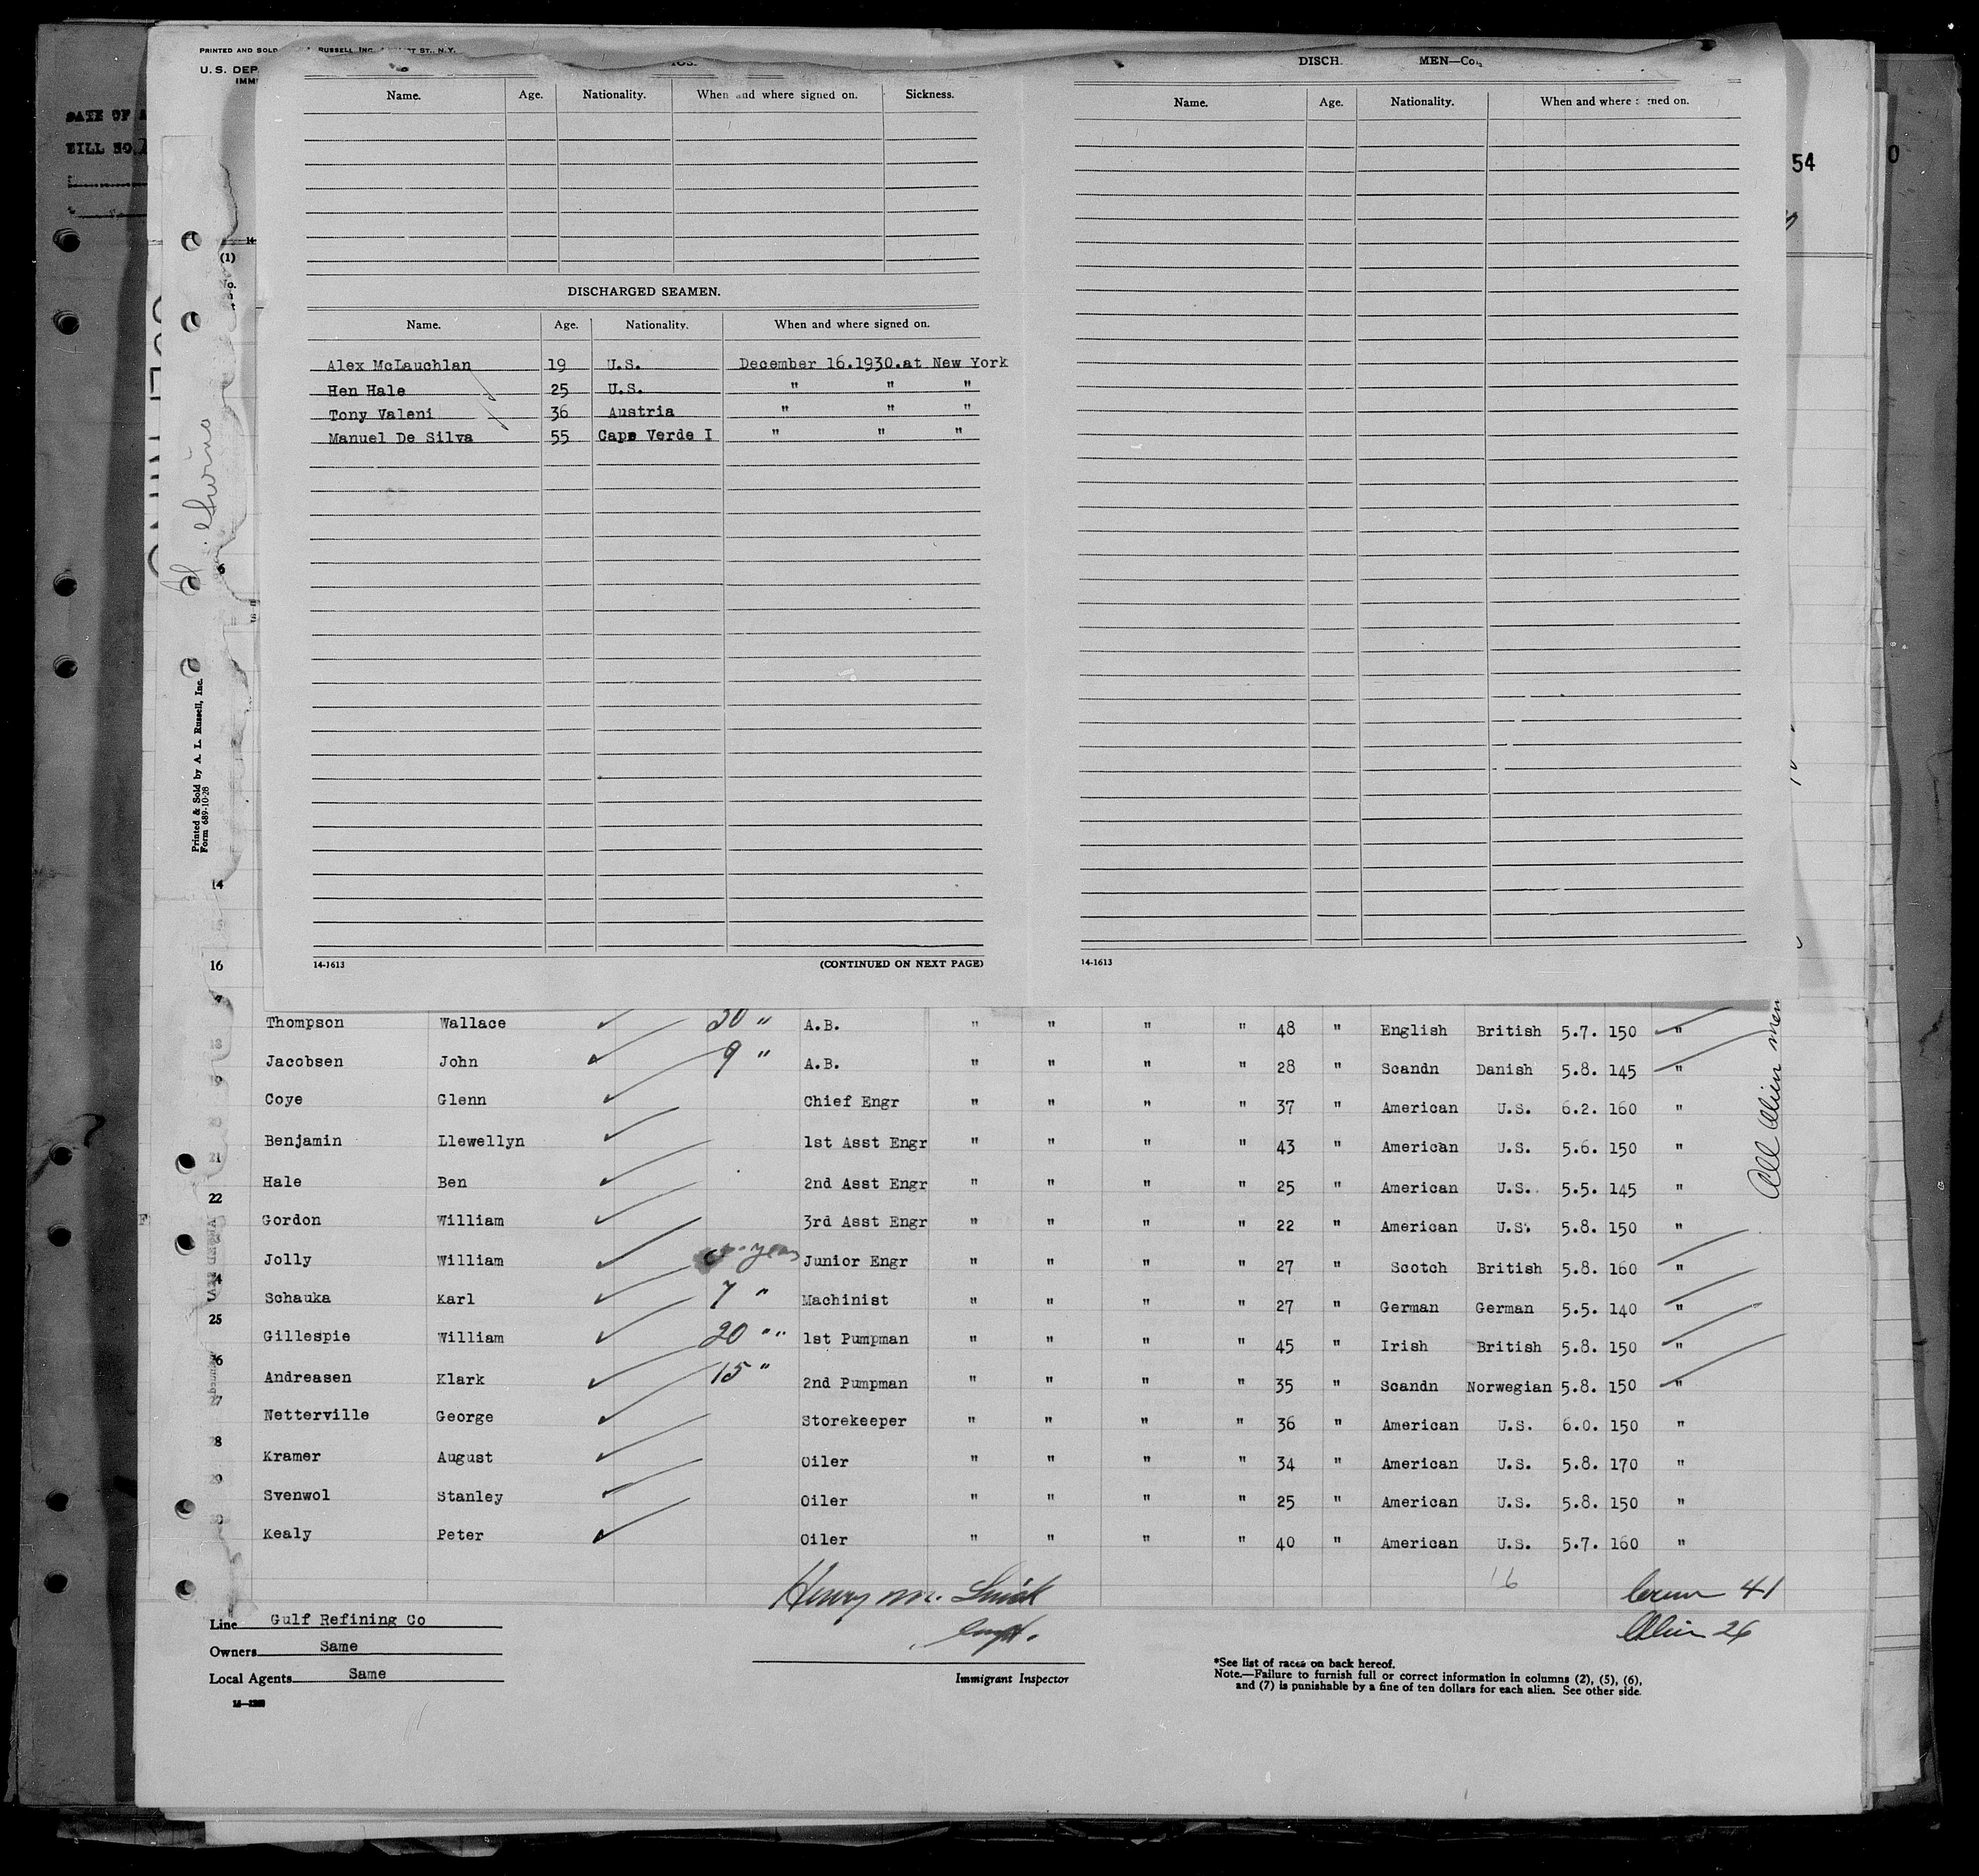 PRINTED AND SOLD RUSSELL, INC. ST., N.Y.
U. S. DEP
IMM
DATE OF
BILL NO.
54
0
(1)
Name. Age. Nationality. When and where signed on. Sickness.
DISCHARGED SEAMEN.
Name. Age. Nationality. When and where signed on.
Alex McLauchlan 19 U.S. December 16.1930.at New York
Hen Hale 25 U.S. " " "
Tony Valeni 36 Austria " " "
Manuel De Silva 55 Cape Verde I " " "
14-1613 (CONTINUED ON NEXT PAGE)
DISCH. MEN—Con.
Name. Age. Nationality. When and where signed on.
14-1613
Printed & Sold by A. L. Russell, Inc.
Form 689-10-28
14
16
Thompson Wallace 30 " A.B. " " " " 48 " English British 5.7. 150 "
Jacobsen John 9 " A.B. " " " " 28 " Scandn Danish 5.8. 145 "
Coye Glenn Chief Engr " " " " 37 " American U.S. 6.2. 160 "
Benjamin Llewellyn 1st Asst Engr " " " " 43 " American U.S. 5.6. 150 "
21
Hale Ben 2nd Asst Engr " " " " 25 " American U.S. 5.5. 145 "
22
Gordon William 3rd Asst Engr " " " " 22 " American U.S. 5.8. 150 "
Jolly William years Junior Engr " " " " 27 " Scotch British 5.8. 160 "
Schauka Karl 7 " Machinist " " " " 27 " German German 5.5. 140 "
25
Gillespie William 20 " " 1st Pumpman " " " " 45 " Irish British 5.8. 150 "
Andreasen Klark 15 " 2nd Pumpman " " " " 35 " Scandn Norwegian 5.8. 150 "
Netterville George Storekeeper " " " " 36 " American U.S. 6.0. 150 "
Kramer August Oiler " " " " 34 " American U.S. 5.8. 170 "
Svenwol Stanley Oiler " " " " 25 " American U.S. 5.8. 150 "
Kealy Peter Oiler " " " " 40 " American U.S. 5.7. 160 "
All Alien men
16
Henry M.
Capt.
Crew 41
Alien 26
Line Gulf Refining Co
Owners Same
Local Agents Same
Immigrant Inspector
*See list of races on back hereof.
Note.—Failure to furnish full or correct information in columns (2), (5), (6),
and (7) is punishable by a fine of ten dollars for each alien. See other side.